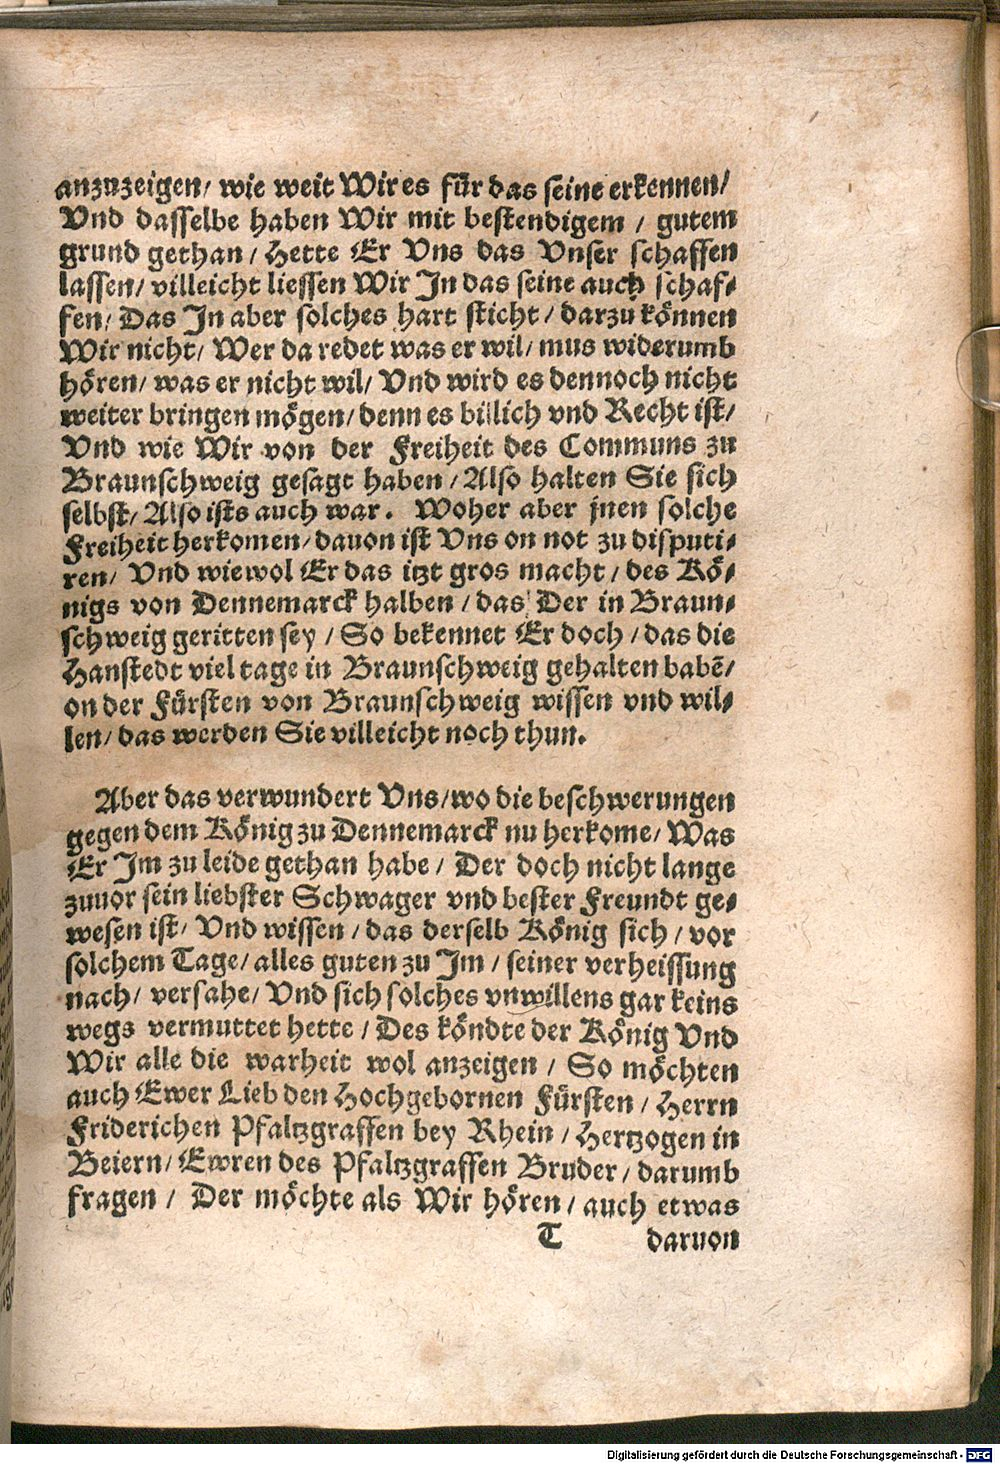 anzuzeigen/ wie weit Wir es für das seine erkennen/
Vnd dasselbe haben Wir mit bestendigem / gutem
grund gethan / Hette Er Vns das Vnser schaffen
lassen/ villeicht liessen Wir In das seine auch schaf⸗
fen/ Das In aber solches hart sticht / darzu können
Wir nicht/ Wer da redet was er wil/ mus widerumb
hören/ was er nicht wil/ Vnd wird es dennoch nicht
weiter bringen mögen/ denn es billich vnd Recht ist/
Vnd wie Wir von der Freiheit des Communs zu
Braunschweig gesagt haben / Also halten Sie sich
selbst/ Also ists auch war. Woher aber jnen solche
Freiheit herkomen/ dauon ist Vns on not zu disputi⸗
ren/ Vnd wiewol Er das itzt gros macht / des Kö⸗
nigs von Dennemarck halben / das Der in Braun⸗
schweig geritten sey / So bekennet Er doch / das die
Hanstedt viel tage in Braunschweig gehalten babē/
on der Fürsten von Braunschweig wissen vnd wil⸗
len/ das werden Sie villeicht noch thun.
Aber das verwundert Vns/ wo die beschwerungen
gegen dem König zu Dennemarck nu herkome/ Was
Er Im zu leide gethan habe / Der doch nicht lange
zuuor sein liebster Schwager vnd bester Freundt ge⸗
wesen ist/ Vnd wissen / das derselb König sich / vor
solchem Tage/ alles guten zu Im / seiner verheissung
nach/ versahe/ Vnd sich solches vnwillens gar keins
wegs vermuttet hette / Des köndte der König Vnd
Wir alle die warheit wol anzeigen / So möchten
auch Ewer Lieb den Hochgebornen Fürsten / Herrn
Friderichen Pfaltzgraffen bey Rhein / Hertzogen in
Beiern/ Ewren des Pfaltzgraffen Bruder / darumb
fragen / Der möchte als Wir hören / auch etwas
T daruon
Digitalisierung gefördert durch die Deutsche Forschungsgemeinschaft - DFG